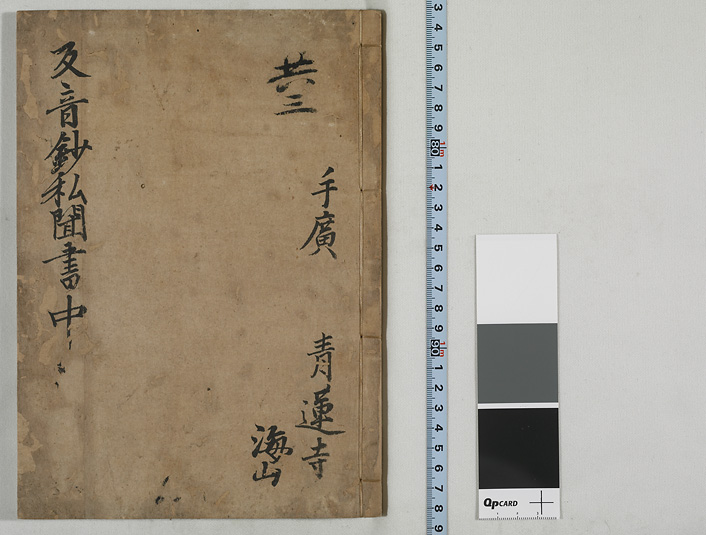 共三
手廣
青蓮寺
海山
反音鈔私聞書中
3
4
5
6
7
8
9
80 1m
1
2
3
4
5
6
7
8
9
90 1m
1
2
3
4
5
6
7
8
9
QPCARD